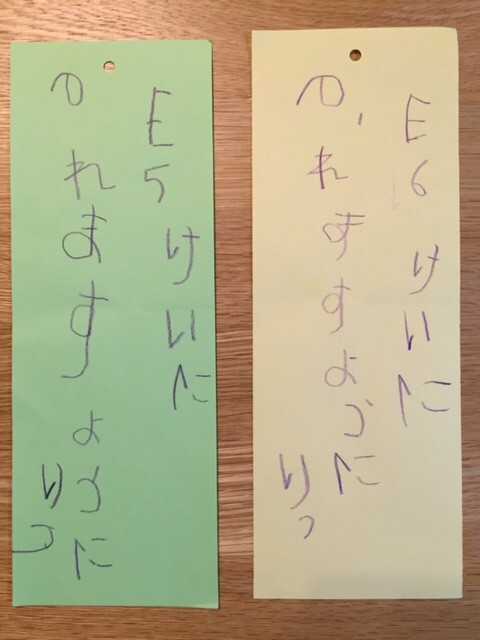 E6けいに
のれますように
りつ
E5けいに
のれますように
りつ